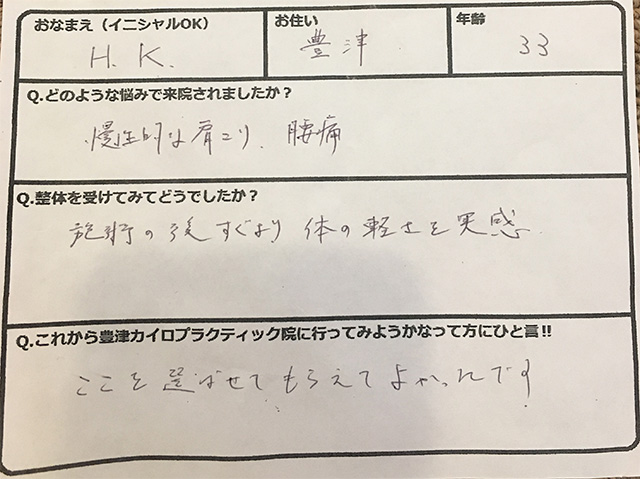 おなまえ（イニシャルOK） お住い 年齢
H. K. 豊津 33
Q.どのような悩みで来院されましたか？
慢性的な肩こり、腰痛
Q.整体を受けてみてどうでしたか？
施術の後すぐより 体の軽さを実感
Q.これから豊津カイロプラクティック院に行ってみようかなって方にひと言!!
ここを選ばせてもらえてよかったです